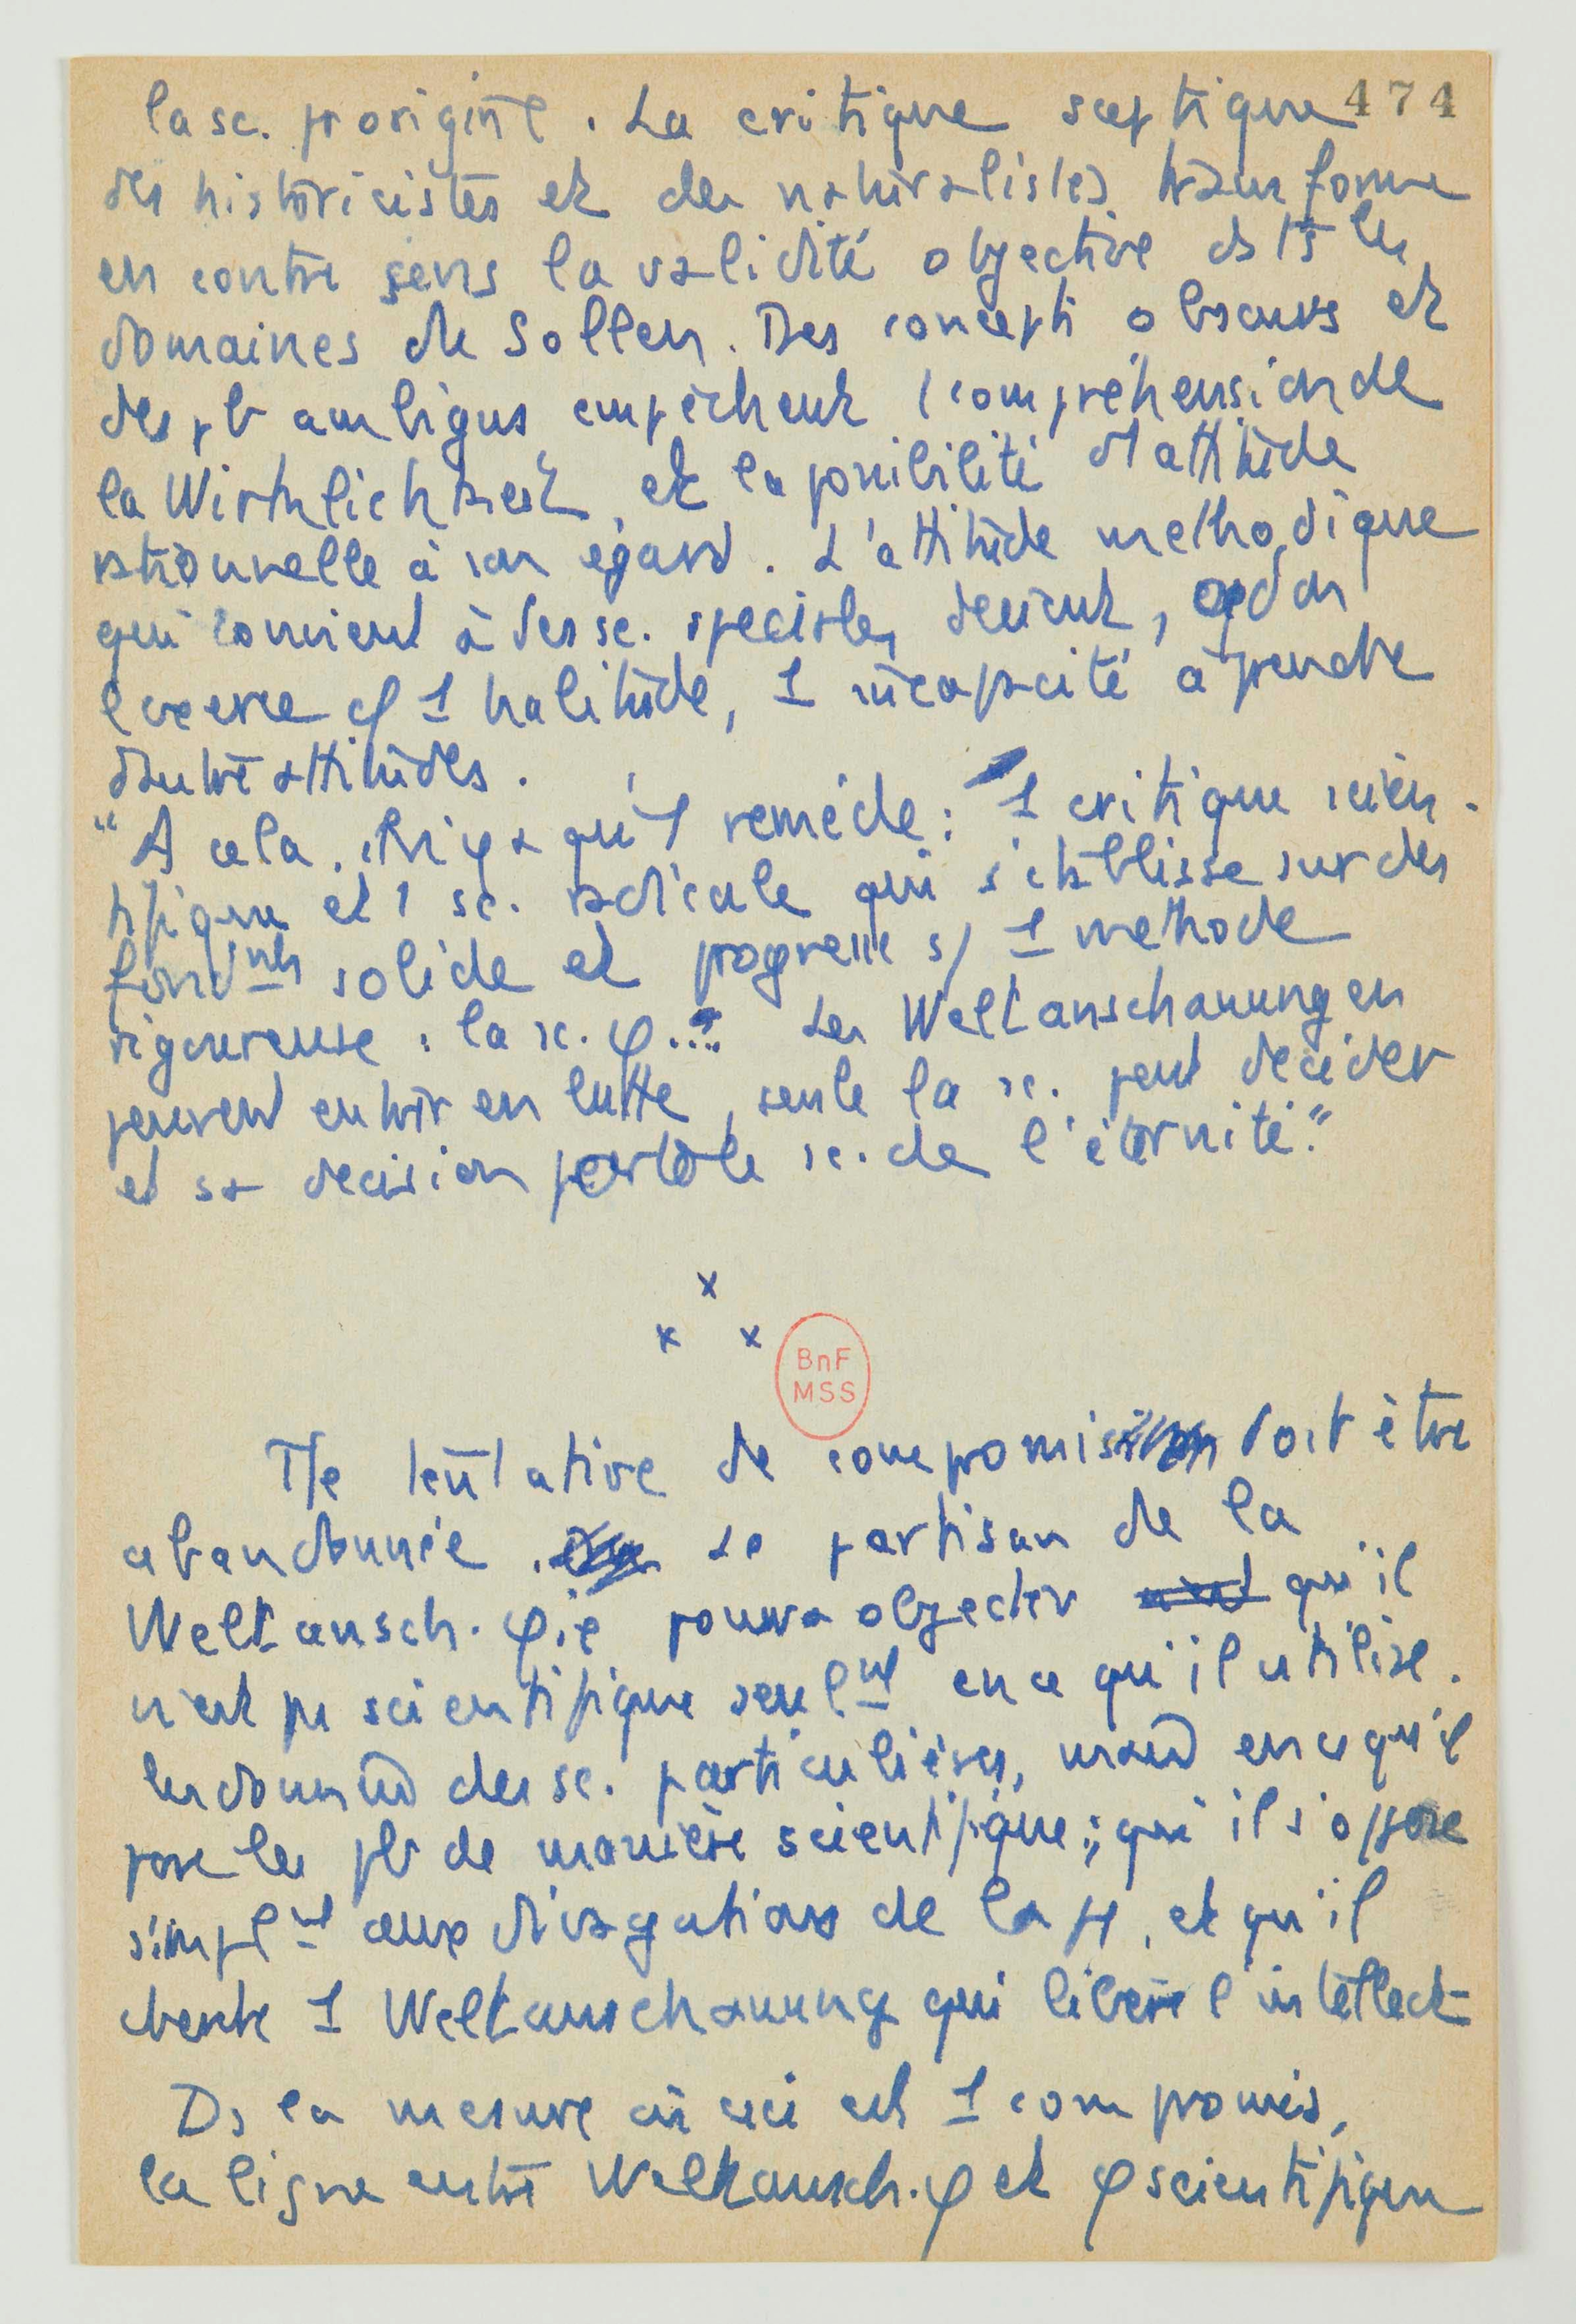 474
la sc. p origine. La critique sceptique
des historicistes et des naturalistes transforme
en contre sens la validité objective ds ts les
domaines de Sollen. Des concepts obscurs et
des pb ambigus empêchent l compréhension de
la Wirklichkeit, et la possibilité d'attitude
rationnelle à son égard. L'attitude methodique
qui convient à des sc. speciales devient,
1 habitude, 1 incapacité à prendre
d'autre attitudes.
"A cela, il n'y a qu'1 remède : 1 critique scien-
tifique et 1 sc. radicale qui s'établisse sur des
fondmts solide et progresse s/ 1 methode
rigoureuse : la sc. φ... Les Weltanschauungen
peuvent entrer en lutte, seule la sc. peut decider
et sa decision porte le sc. de l'éternité."
x
x x
BnF
MSS
Tte tentative de compromis doit être
abandonnée. Le partisan de la
Weltansch. φie pourra objecter qu'il
n'est ps scientifique seulmt en ce qu'il utilise
les données des sc. particulières, mais en ce qu'il
pose les pb de manière scientifique ; qu'il s'oppose
simplmt aux divagations de la , et qu'il
cherche 1 Weltanschauung qui libère l'intellect
Ds la mesure où ceci est 1 compromis,
la ligne entre Weltansch. φ et φ scientifique